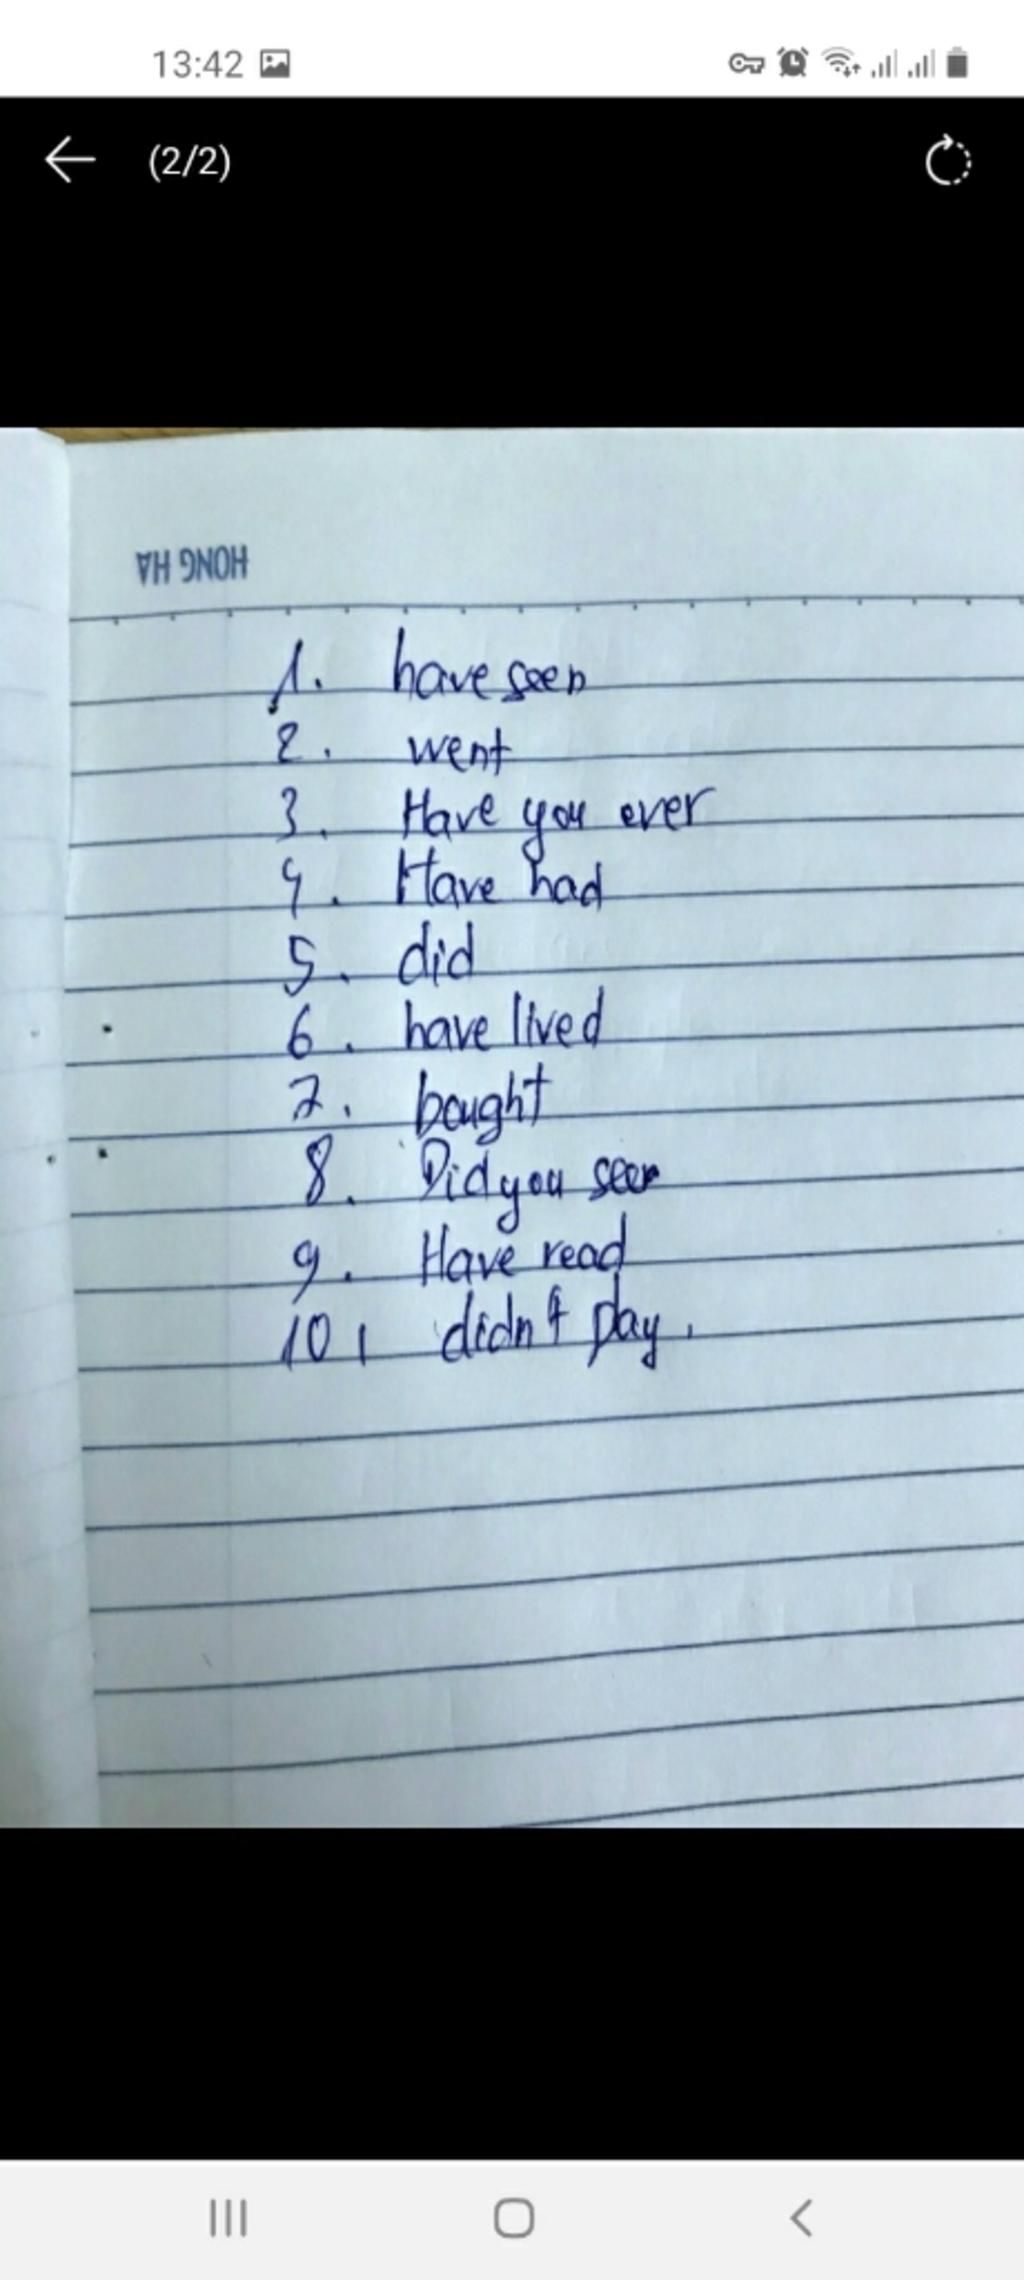 13:42
(2/2)
HONG HA
1. have seen
2. went
3. Have you ever
4. Have had
5. did
6. have lived
7. bought
8. Did you see
9. Have read
10, didn't play.